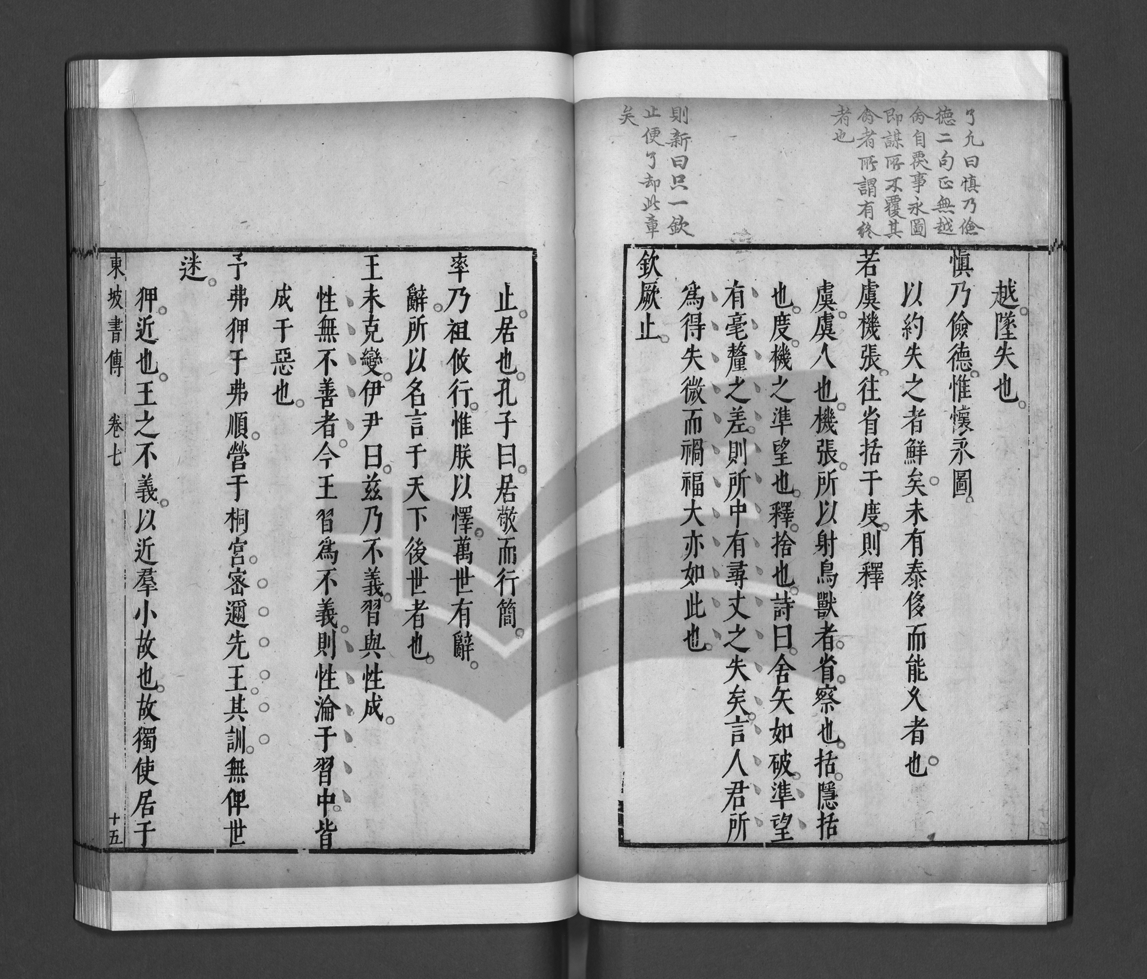 了凡曰慎乃儉
德二句正無越
命自覆事永圖
即謀所不覆其
命者所謂有終
者也
則新曰只一欽
止便了却此章
矣
越墜失也
慎乃儉德惟懷永圖
以約失之者鮮矣未有泰侈而能久者也
若虞機張往省括于度則釋
虞虞人也機張所以射鳥獸者省察也括隱括
也度機之準望也釋捨也詩曰舍矢如破準望
有毫釐之差則所中有尋丈之失矣言人君所
為得失微而禍福大亦如此也
欽厥止
止居也孔子曰居敬而行簡
率乃祖攸行惟朕以懌萬世有辭
辭所以名言于天下後世者也
王未克變伊尹曰茲乃不義習與性成
性無不善者今王習為不義則性淪于習中皆
成于惡也
予弗狎于弗順營于桐宮密邇先王其訓無俾世
迷
狎近也王之不義以近羣小故也故獨使居于
東坡書傳 卷七 十五